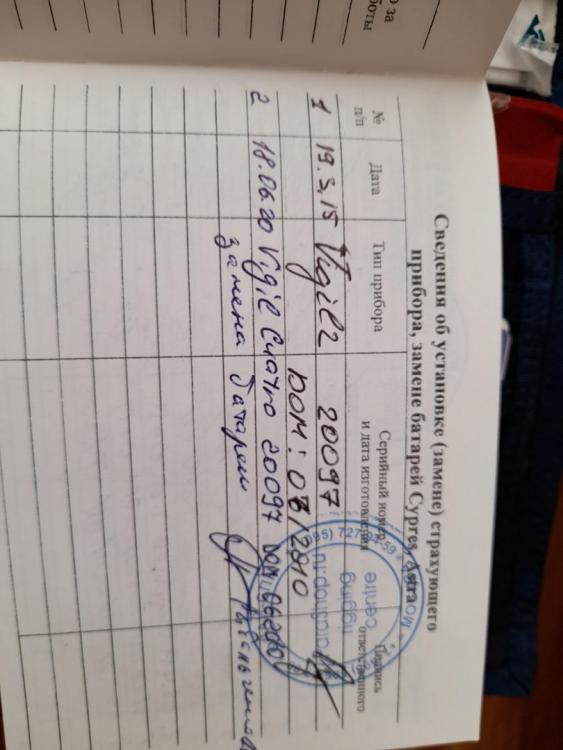 о за
боты
Сведения об установке (замене) страхующего
прибора, замене батарей Cypres, Astra
№
п/п
Дата
Тип прибора
Серийный номер
и дата изготовления
Подпись
ответственного
1 19.3.15 Vigil 2 20097
DOM: 08/2010
2 18.06.20 Vigil Cuatro 20097 DOM:
замена батареи
095) 727
rigging
centre